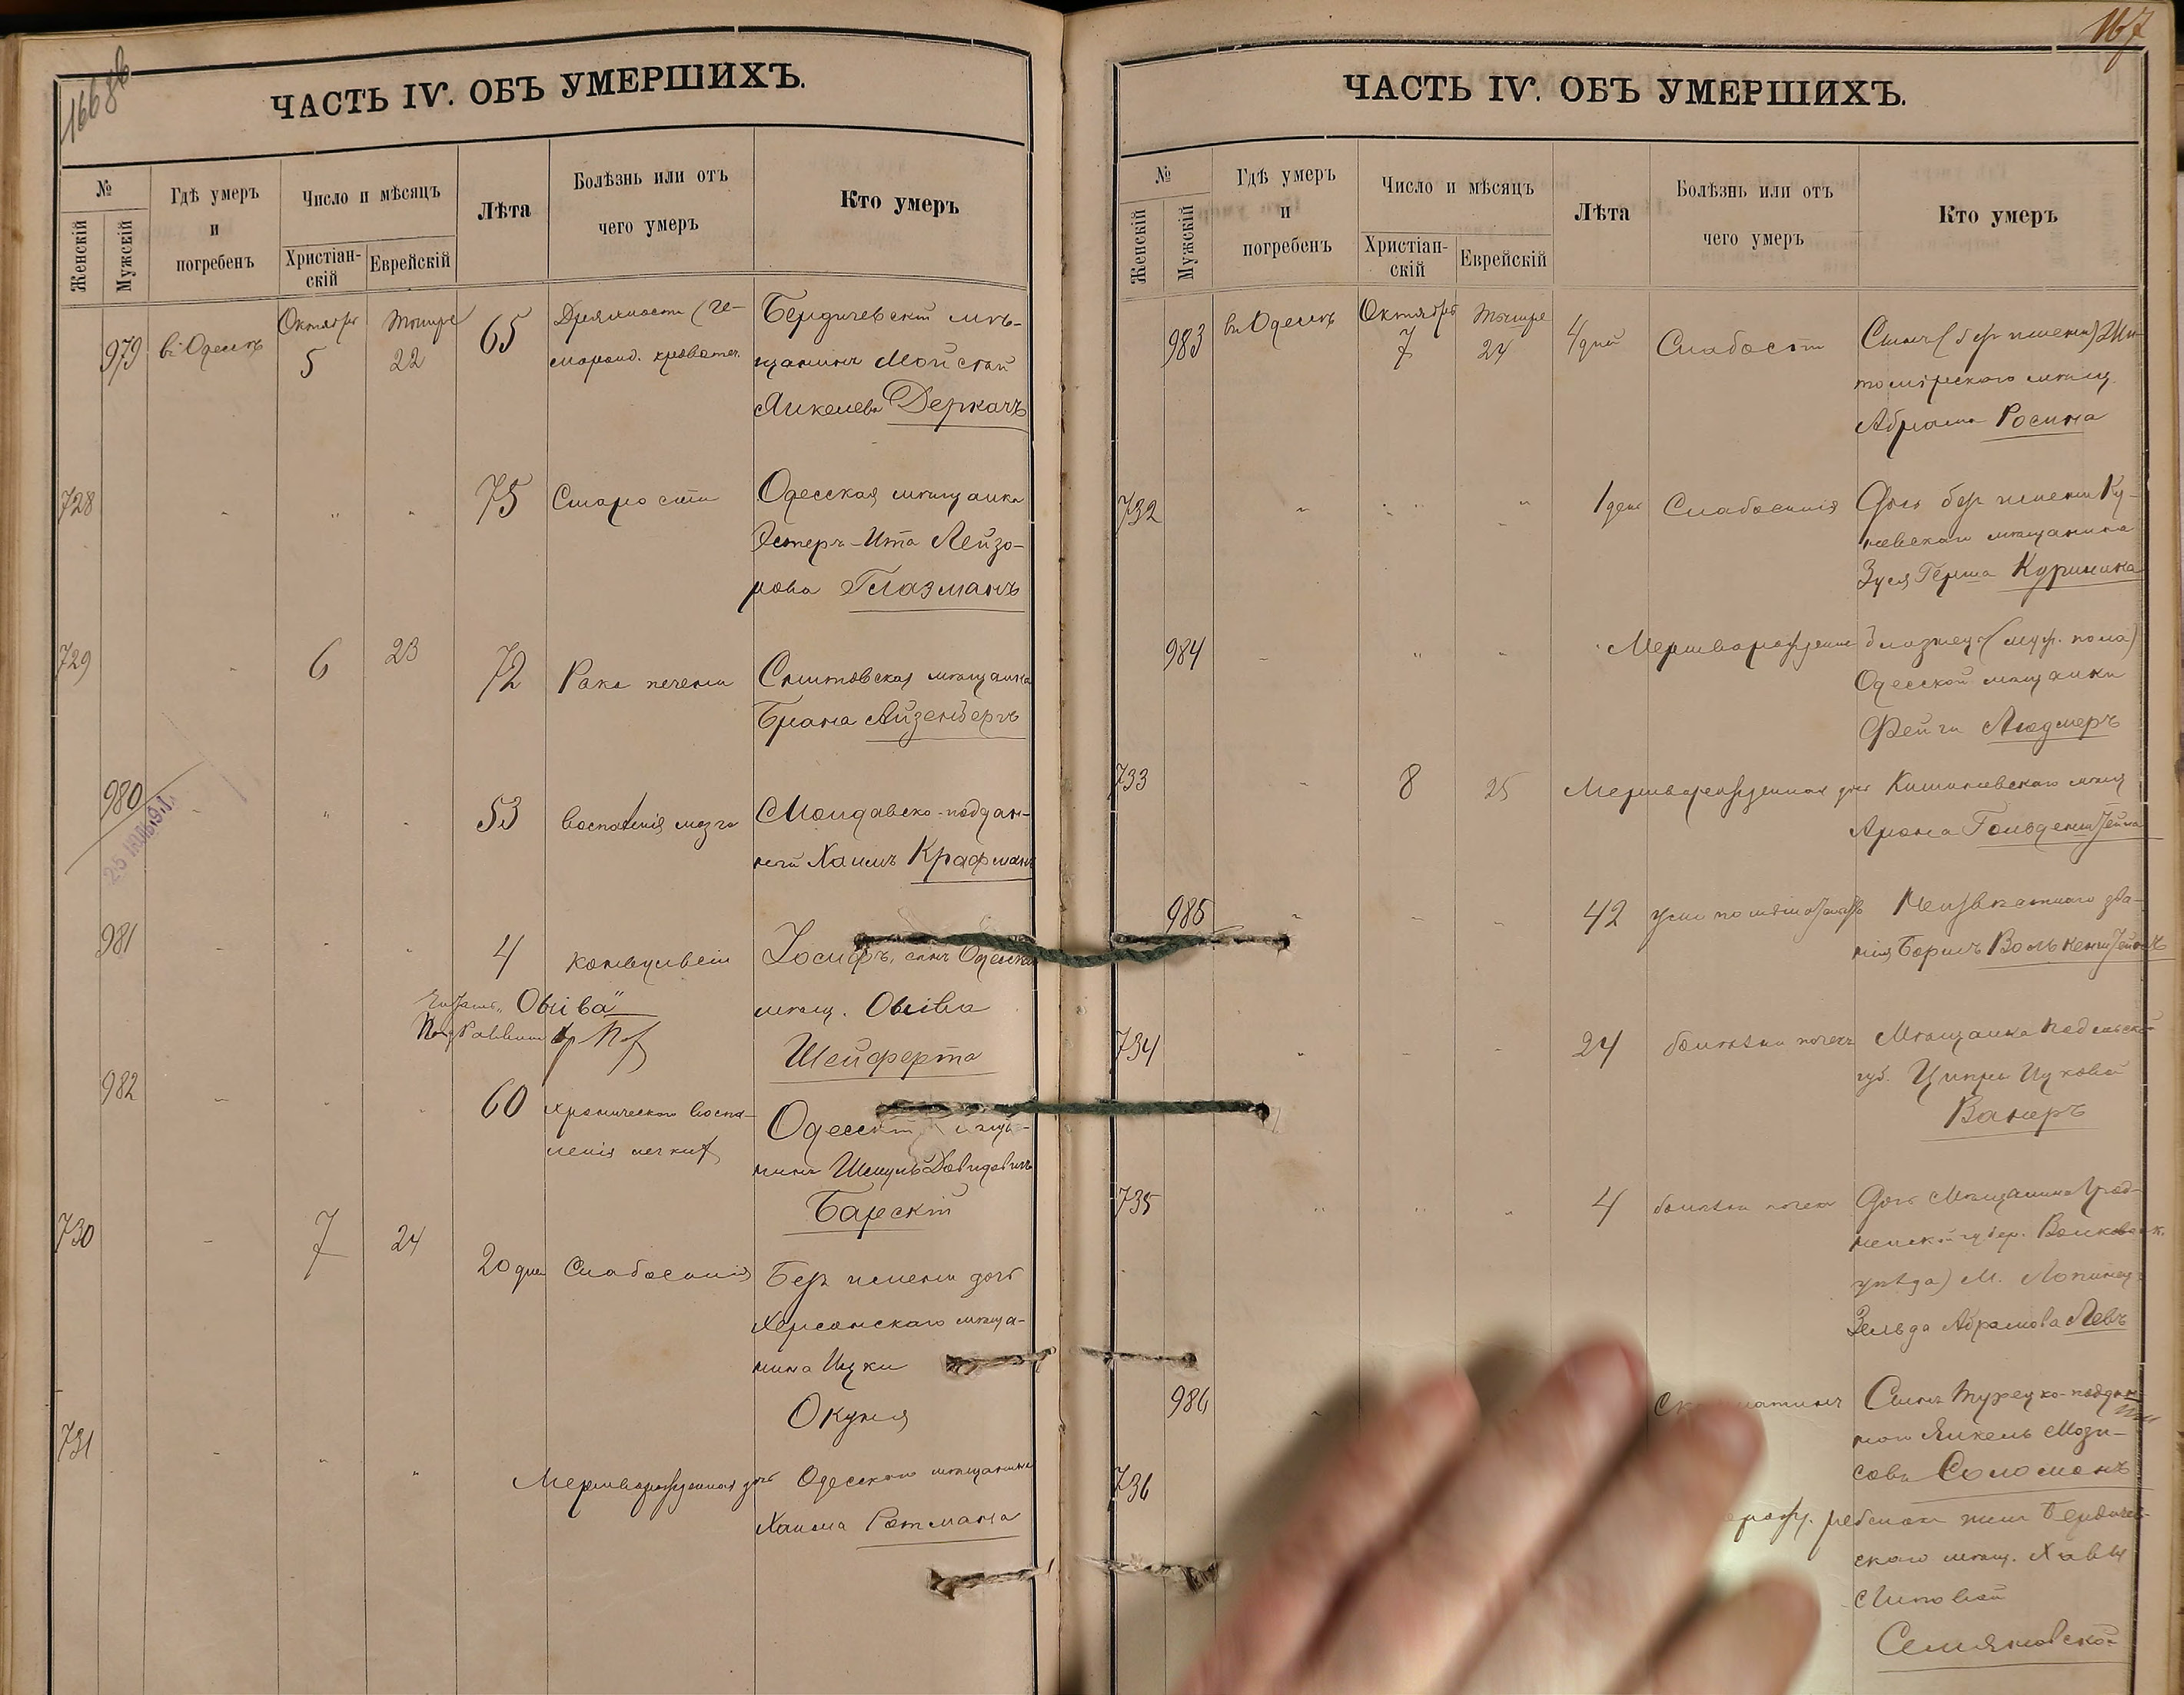 166об
ЧАСТЬ IV. ОБЪ УМЕРШИХЪ.
№
Женскій
Мужскій
Гдѣ умеръ
и
погребенъ
Число и мѣсяцъ
Христіан-
скій
Еврейскій
Лѣта
Болѣзнь или отъ
чего умеръ
Кто умеръ
979
въ Одессѣ
Октября
5
Тишре
22
65
Дряхлости (ге-
мороид. кровотеч.
Бердичевскій мѣ-
щанинъ Мойсей
Янкелевъ Деркачъ
728
75
Старости
Одесская мѣщанка
Эстеръ-Ита Лейзо-
рова Глазманъ
729
6
23
72
Рака печени
мѣщанка
Бриана Айзенбергъ
980
25
53
Воспаленія мозга
Молдавско-поддан-
ный Хаимъ Крафманъ
981
4
конвульсіи
Іосифъ, сынъ Одесск
мѣщ. Овсіева
Шейферта
982
60
хроническаго воспа-
ленія легкихъ
Одесскій мѣща-
нинъ Шмуль Давидовичъ
Барскій
730
7
24
20 дне
Слабостій
Безъ имени дочь
Херсонскаго мѣща-
нина Ицки
Окуня
731
Мертворожденная дочь Одесскаго мѣщанина
Хаима Ротмана
167
ЧАСТЬ IV. ОБЪ УМЕРШИХЪ.
№
Женскій
Мужскій
Гдѣ умеръ
и
погребенъ
Число и мѣсяцъ
Христіан-
скій
Еврейскій
Лѣта
Болѣзнь или отъ
чего умеръ
Кто умеръ
983
въ Одессѣ
Октября
7
Тишре
24
4 дней
Слабости
Сынъ (безъ имени) Жи-
томірскаго мѣщ.
Абрама Росина
732
1 день
Слабостія
Дочь безъ имени
мѣщанина
Зуся Герша Куриника
984
Мертворожденный близнецъ (муж. пола)
Одесской мѣщанки
Фейги Людмеръ
733
8
25
Мертворожденная дочь Кишиневскаго мѣщ
Арона Гольденштейна
985
42
Неизвѣстнаго зва-
нія Борисъ Волькенштейнъ
734
24
болѣзни почекъ
Мѣщанка Подольской
губ. Ципра Ицкова
Ванеръ
735
4
болѣзни почекъ
Дочь мѣщанина Грод-
ненской губер. Волковыск.
уѣзда) М.
Зельда Абрамова Левъ
986
Сынъ Турецко-поддан
наго Янкель Мози-
совъ Соломонъ
736
ребенокъ жены Бердичев-
скаго мѣщ. Хавы
Семяновской